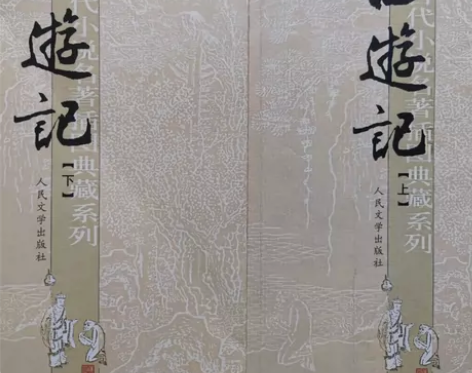 遊記
【下】
人民文学出版社
代小说名著插图典藏系列
遊記
【上】
人民文学出版社
代小说名著插图典藏系列